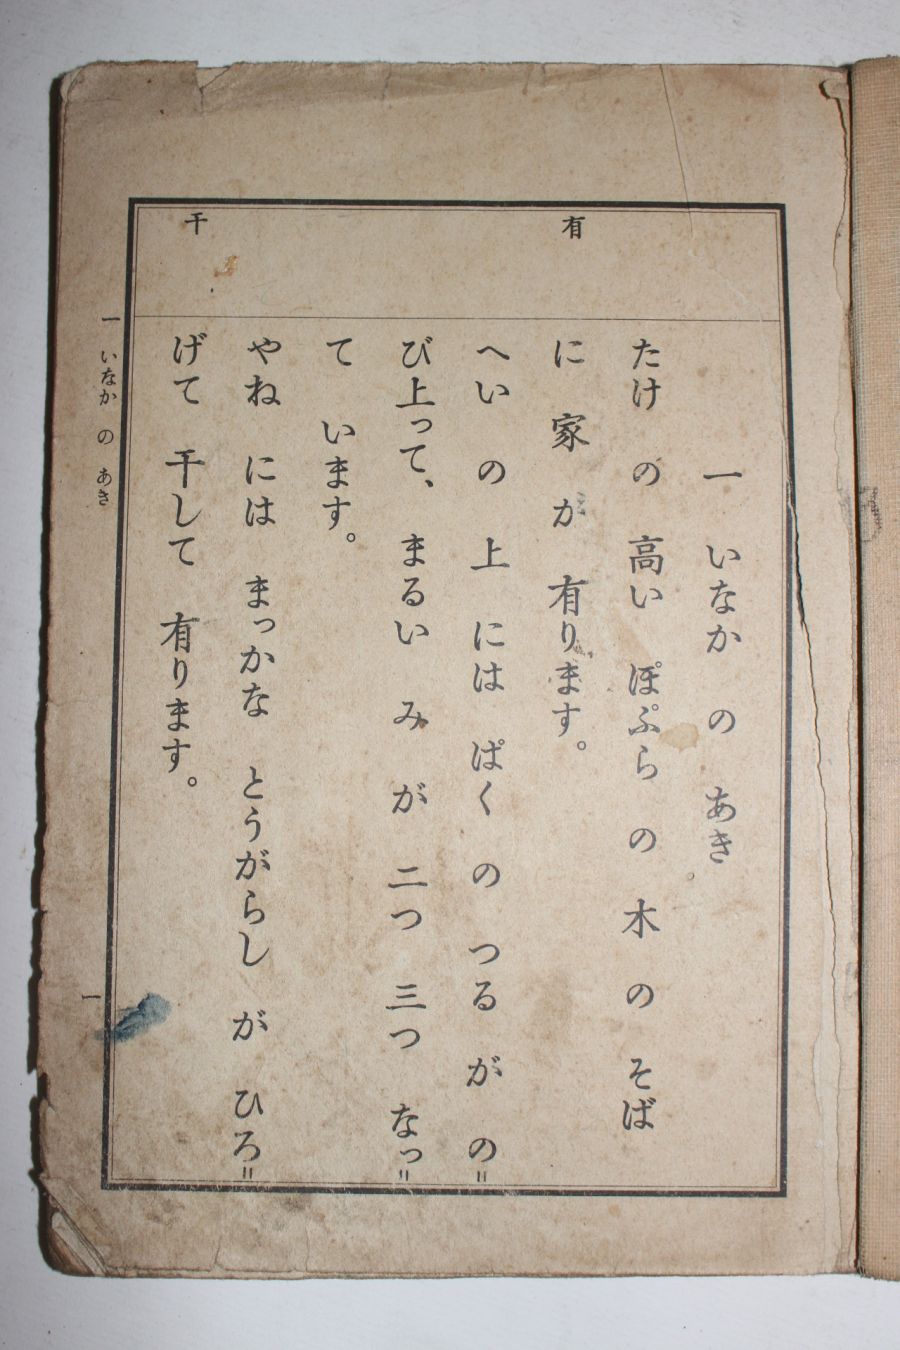 有
干
一 いなか の あき
たけ の 高い ぽぷら の 木 の そば
に 家 が 有ります。
へい の 上 には ぱく の つる が の〃
び上って、 まるい み が 二つ 三つ なっ〃
て います。
やね には まっかな とうがらし が ひろ〃
げて 干して 有ります。
一 いなか の あき
一